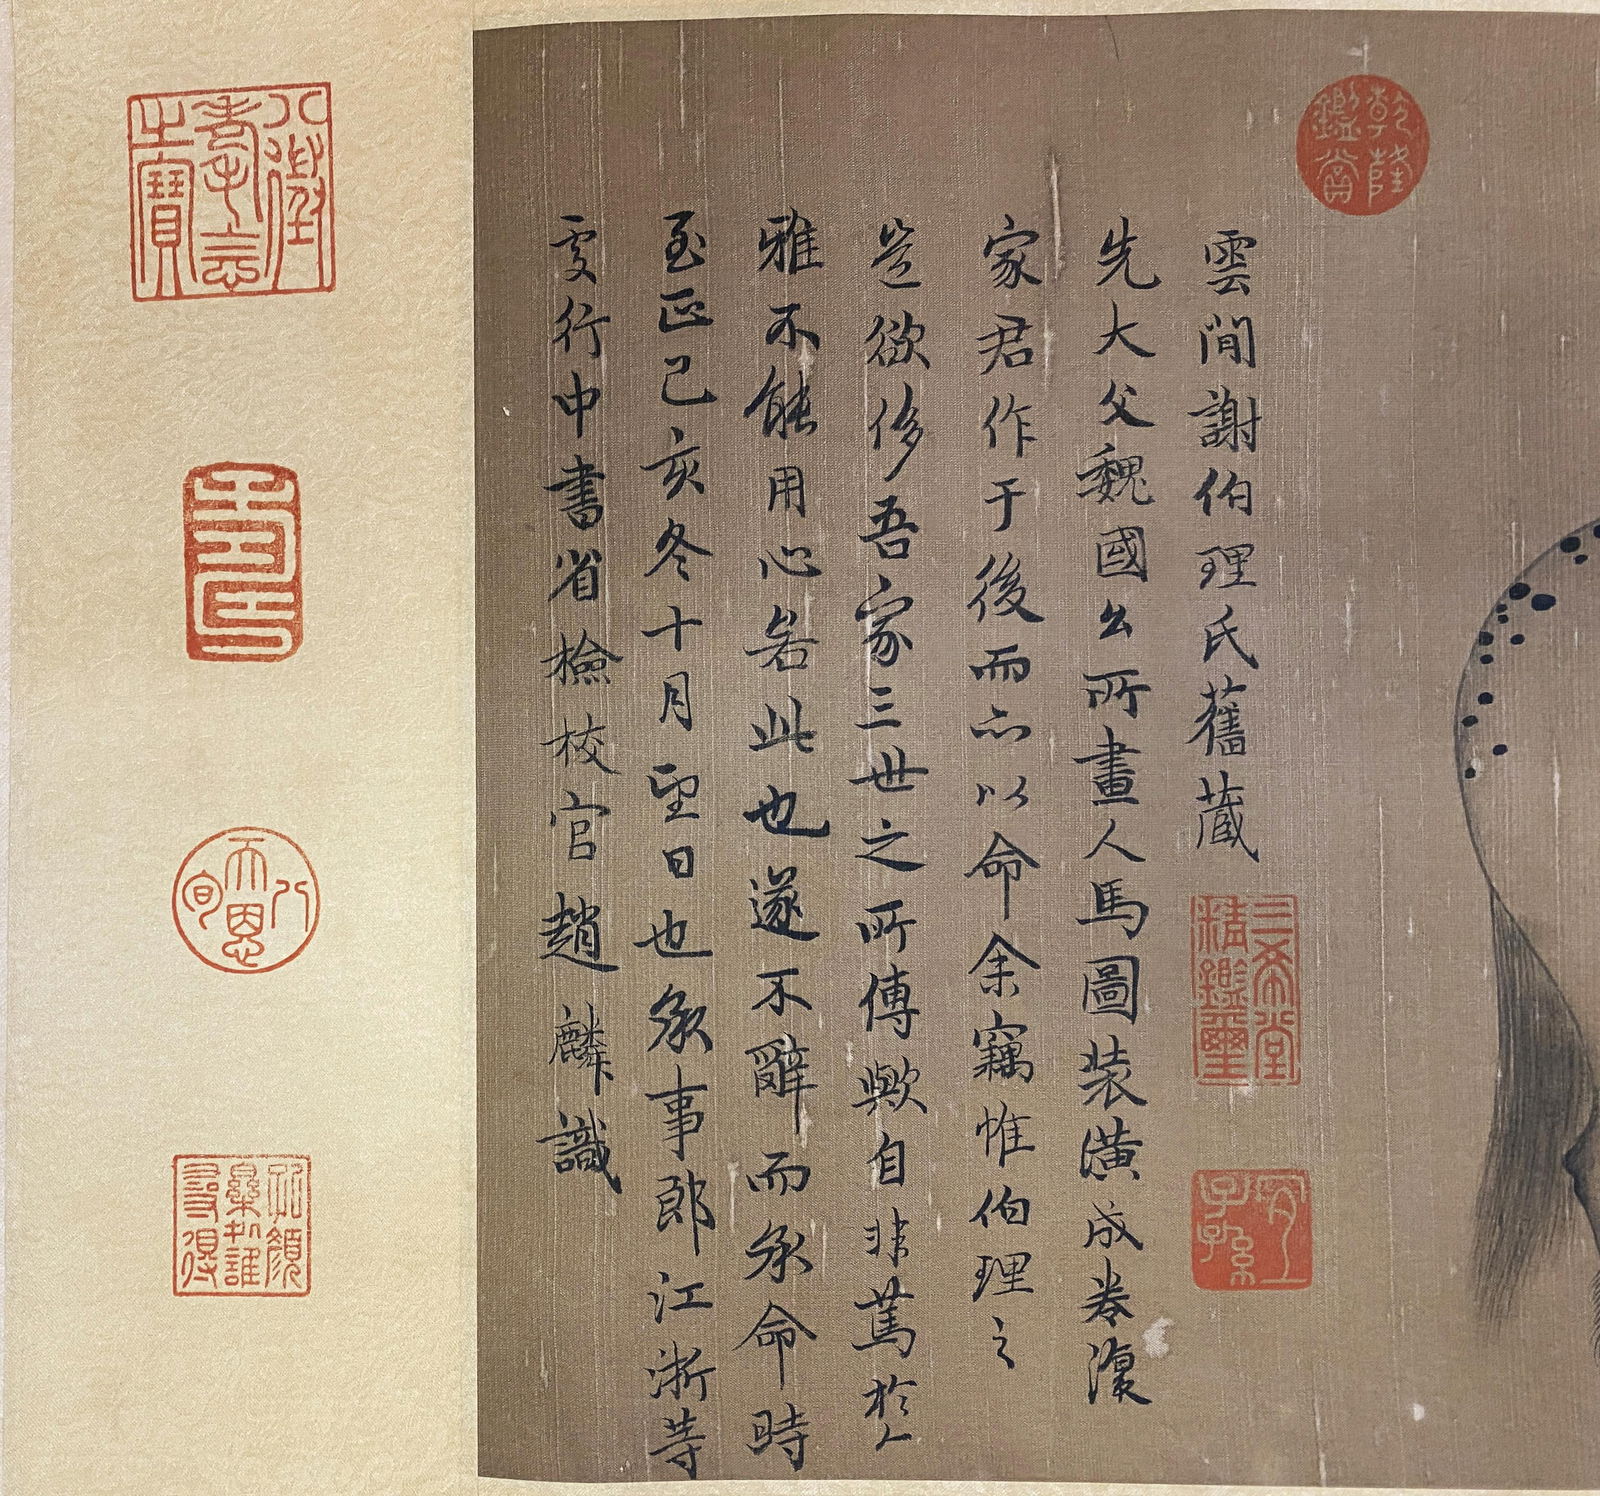 乾隆鑑賞
雲間謝伯理氏舊藏
三希堂精鑑璽
宜子孫
先大父魏國公所畫人馬圖裝潢成卷復
家君作于後而亦以命余竊惟伯理之
豈欲侈吾家三世之所傳歟自非篤於人
雅不能用心若此也遂不辭而承命時
至正己亥冬十月望日也承事郎江浙等
處行中書省檢校官趙麟識
八徵耄念之寶
壽
八旬天恩
孔顏樂處誰尋得